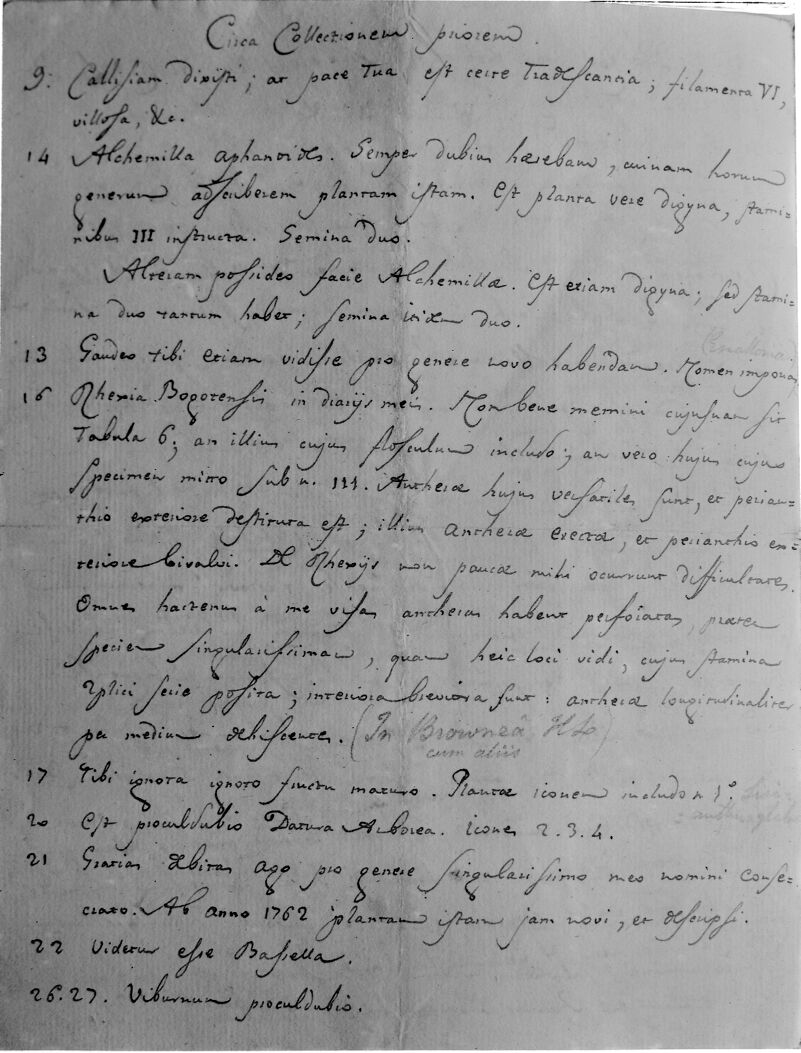 Circa Collectionem priorem.
9: Callisiam dixisti; at pace tua est certe Tradescantia; filamenta VI,
villosa, &c.
14 Alchemilla aphanoides. Semper dubius hærebam, cuinam horum
generum adscriberem plantam istam. Est planta vere digyna, stami-
nibus III instructa. Semina duo.
Alteram possideo facie Alchemillæ. Est etiam digyna; sed stami-
na duo tantum habet; semina itidem duo.
13 Gaudeo tibi etiam vidisse pro genere novo habendam. Nomen imponas
16 Rhexia Bogotensis in diarijs meis. Non bene memini cujusnam sit
Tabula 6; an illius cujus flosculum includo; an vero hujus cujus
specimen mitto sub n. 111. Antheræ hujus versatiles sunt, et perian-
thio exteriore destituta est; illius antheræ erectæ, et perianthio ex-
teriore bivalvi. De Rhexijs non paucæ mihi ocurrunt difficultates.
Omnes hactenus à me visas antheras habent perforatas, præter
speciem singularissimam, quam heic loci vidi, cujus stamina
2plici serie posita; interiora breviora sunt: antheræ longitudinaliter
per medium dehiscentes. (In Browneâ
cum aliis
17 Tibi ignota ignoto fructu maturo. Plantæ iconem includo n 1º.
20 Est proculdubio Datura Arborea. icones 2.3.4.
21 Gratias debitas ago pro genere singularissimo meo nomini conse-
crato. Ab anno 1762 plantam istam jam novi, et descripsi.
22 Videtur esse Bassella.
26.27. Viburnum proculdubio.